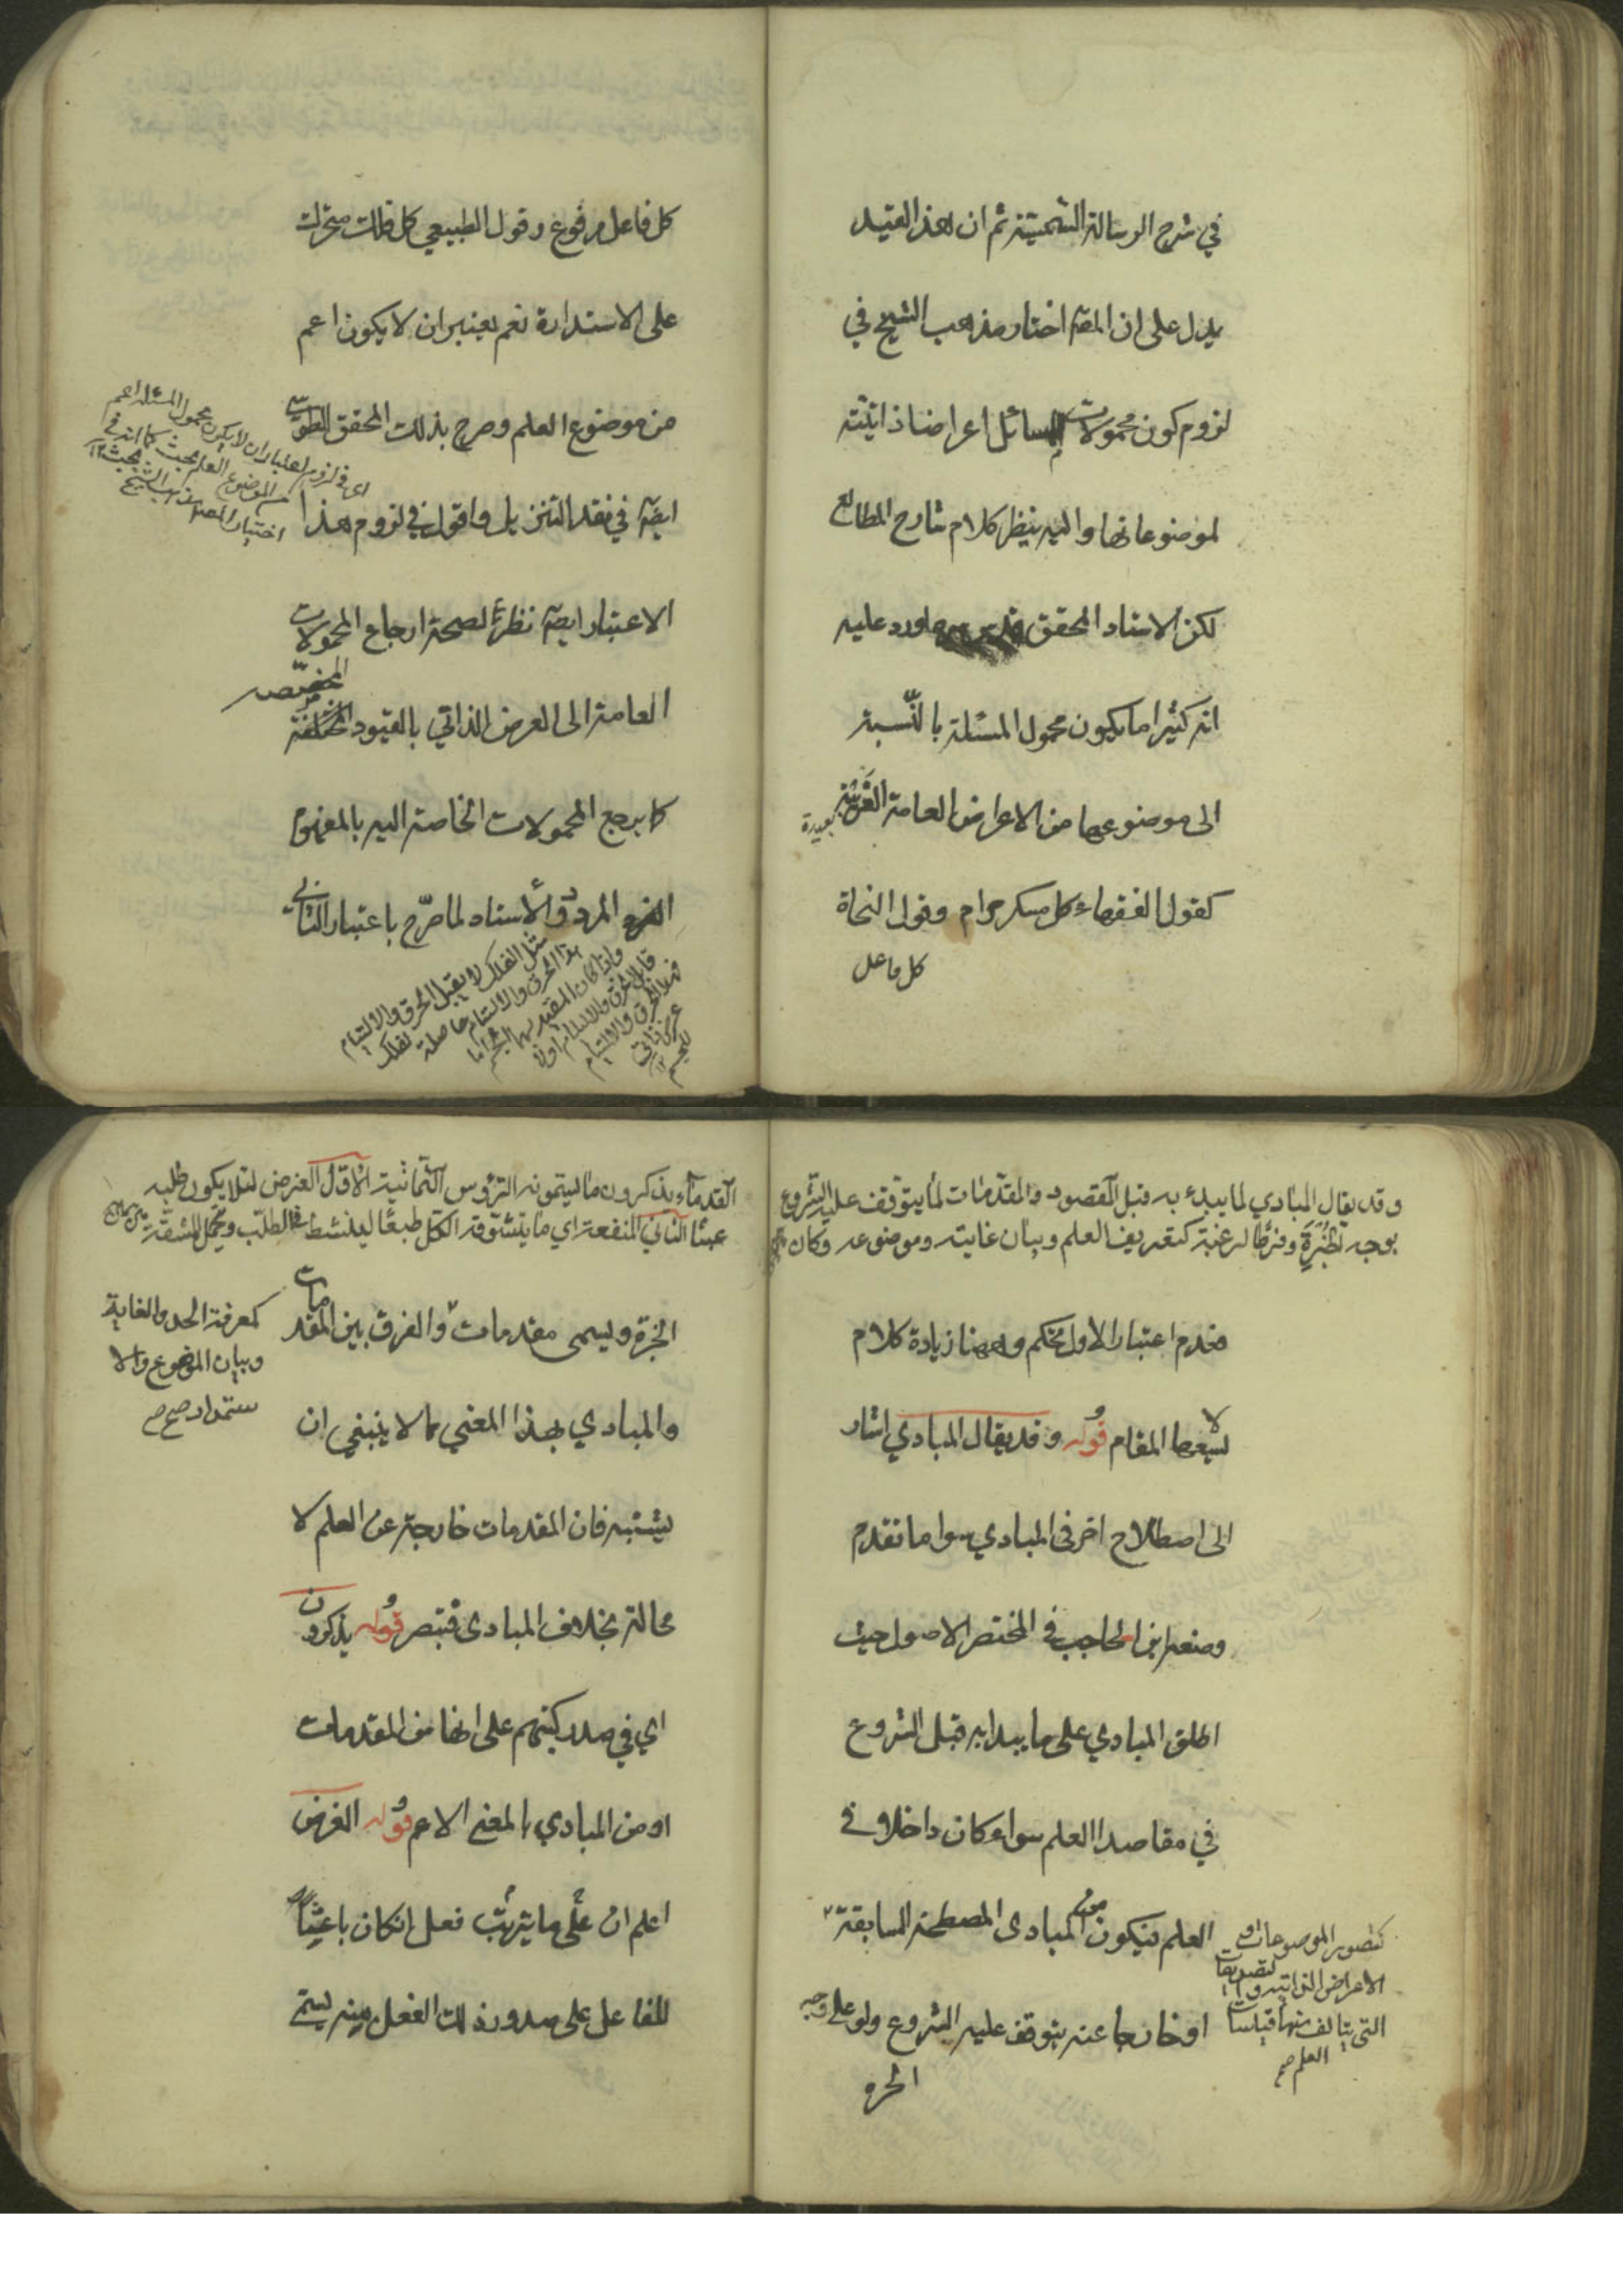 في شرح الرسالة الشمسية ثم ان هذا القيد
يدل على ان المصـ اختار مذهب الشيخ في
لزوم كون محمولات المسائل اعراضا ذاتية
لموضوعاتها واليه ينظر كلام شارح المطالع
لكن الاستاد المحقق قدس سره اورد عليه
انه كثيرا ما يكون محمول المسئلة بالنسبة
الى موضوعها من الاعراض العامة الغريبة
بعيدة
كقول الفقهاء كل مسكر حرام وقول النحاة
كل فاعل
كل فاعل مرفوع وقول الطبيعي كل فلك متحرك
على الاستدارة نعم يعتبر ان لا يكون اعم
من موضوع العلم وصرح بذلك المحقق الطوسي
ايضـ في نقد التنزيل واقول في لزوم هذا
الاعتبار ايضـ نظر لصحة ارجاع المحمولات
العامة الى العرض الذاتي بالقيود
المخصصه
كما يرجع المحمولات الخاصة اليه بالمفهوم
المردد والأستاد لما صرّح باعتبار الثاني
اى في لزوم اعتبار ان لا يكون محمول المسئلة اعم
من الموضوع العلم بحث كما انه في
اختيار المصـ مذهب الشيخ بحث ١٢
مثل الفلك لا يقبل الخرق والالتيام
وقد يقال المبادي لما يبدء به قبل المقصود والمقدمات لما يتوقف عليه الشروع
بوجه الخبرة وفرط الرغبة كتعريف العلم وبيان غايته وموضوعه وكان
فعدم اعتبار الاول تحكم وههنا زيادة كلام
لا يسعها المقام قوله وقد يقال المبادي اشار
الى اصطلاح اخر في المبادي سوا ما تقدم
وضعه ابن الحاجب في المختصر الاصول حيث
اطلق المبادي على ما يبدا به قبل الشروع
في مقاصد العلم سواء كان داخلا في
العلم فيكون من المبادى المصطلحة السابقة
او خارجا عنه يتوقف عليه الشروع ولو على وجه
الخبرة
كتصور الموضوعات و
الاعراض الذاتيه و التصديقات
التي يتالف منها قياسات
العلم صح
القدماء يذكرون ما يسمونه الرؤس الثمانية الاول الغرض لئلا يكون طلبه
عبثا الثاني المنفعة اي ما يتشوقه الكل طبعا لينشط في الطلب ويتحمل المشقة
الخبرة ويسمى مقدمات والفرق بين المقدمات
والمبادي بهذا المعني مما لا ينبغي ان
يشتبه فان المقدمات خارجة عن العلم لا
محالة بخلاف المبادى فتبصر قوله يذكرون
اي في صدر كتبهم على انها من المقدمات
او من المبادي بالمعني الاعم قوله الغرض
اعلم ان على ما يترتب فعل ان كان باعثا
للفاعل على صدور ذلك الفعل منه يسمى
كمعرفة الحد والغاية
وبيان الموضوع والا
ستمداد صح